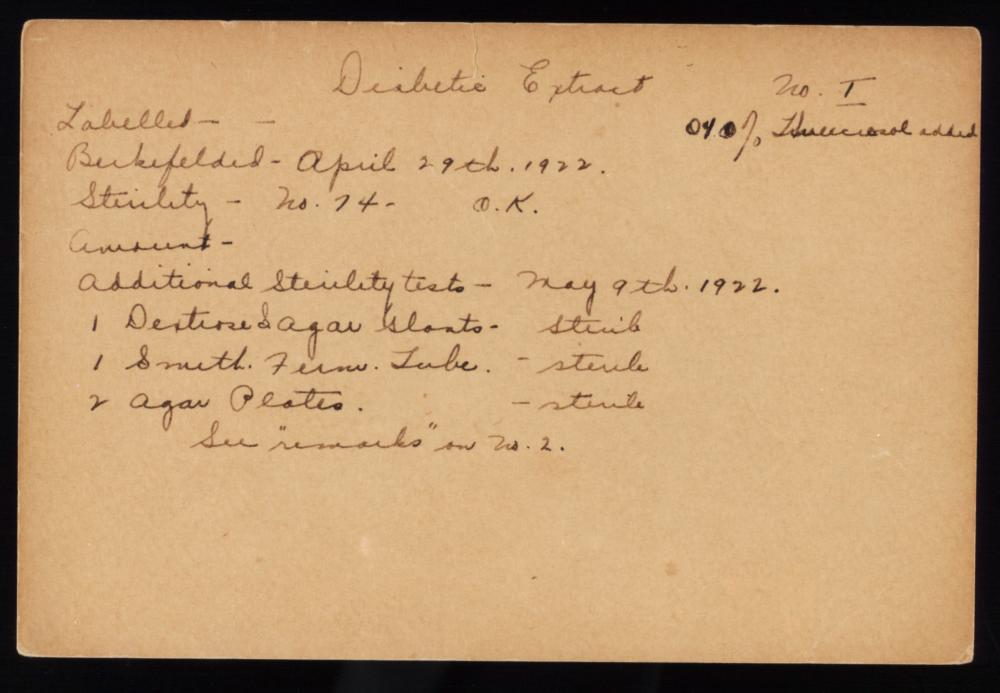 Diabetic Extract No. I
Labelled - -
% Tricresol added
Berkefelded - April 29th. 1922.
Sterility - No. 74 - O.K.
Amount -
Additional Sterility tests - May 9th. 1922.
1 Dextrose Agar Slants - sterile
1 Smith. Ferm. Tube. - sterile
2 Agar Plates. - sterile
See "remarks" on No. 2.